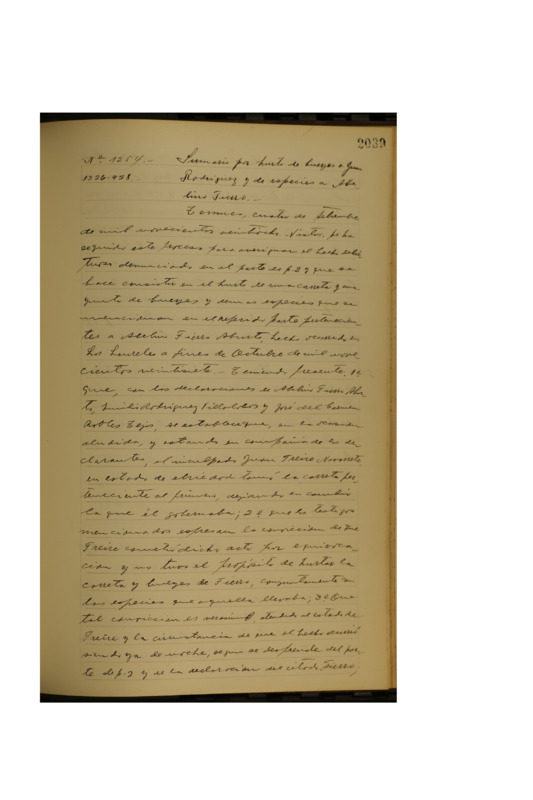 2039
Nº 1254.- Sumario por hurto de bueyes a Juan
1326-928.- Rodríguez y de especies a Abe
lino Fierro.-
Temuco, cuatro de Setiembre
de mil novecientos veintiocho. Vistos, se ha
seguido este proceso para averiguar el hecho delic
tuoso denunciado en el parte de p. 2 y que se
hace consistir en el hurto de una carreta y una
yunta de bueyes y demas especies que se
mencionan en el referido parte, pertenecien
tes a Abelino Fierro Aburto, hecho ocurrido en
Los Laureles a fines de Octubre de mil nove
cientos veintisiete.- Teniendo presente: 1º
Que, con las declaraciones de Abelino Fierro Abur
to, Rodriguez Villalobos y José del Carmen
Robles Tejos, se establece que, en la ocasion
aludida, y estando en compañia de los de
clarantes, el inculpado Juan Freire Navarrete,
en estado de ebriedad tomó la carreta per
teneciente al primero, dejando en cambio
la que él gobernaba; 2º que los testigos
mencionados espresan la conviccion de que
Freire cometió dicho acto por equivoca
cion y no tuvo el propósito de hurtar la
carreta y bueyes de Fierro, conjuntamente con
las especies que aquella llevaba; 3º Que
tal conviccion es atendido el estado de
Freire y la circunstancia de que el hecho ocurrió
siendo ya de noche, segun se desprende del par
te de p. 2 y de la declaracion del citado Fierro,